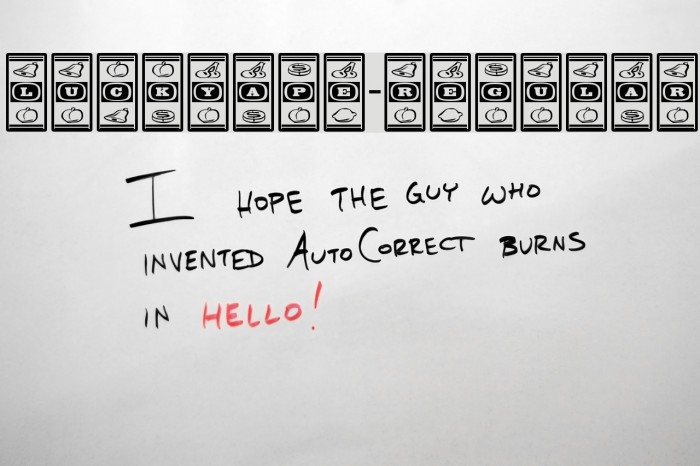 LUCKYAPE-REGULAR
I HOPE THE GUY WHO
INVENTED AUTOCORRECT BURNS
IN HELLO!